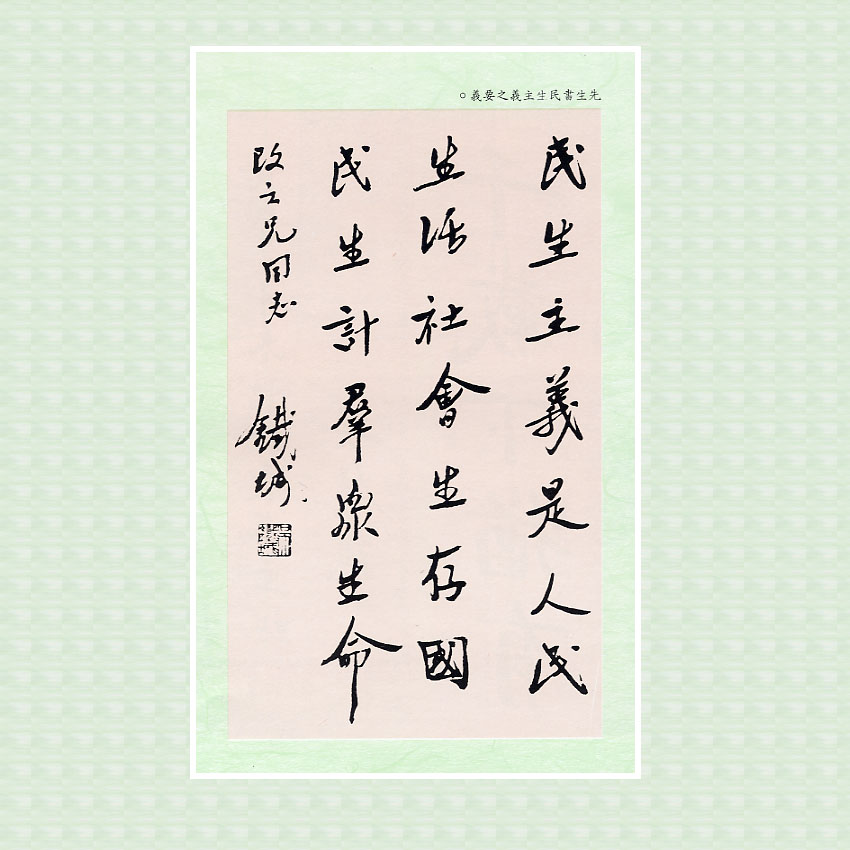 先生書民生主義之要義。
民生主義是人民
生活社會生存國
民生計羣眾生命
兄同志
鐵城